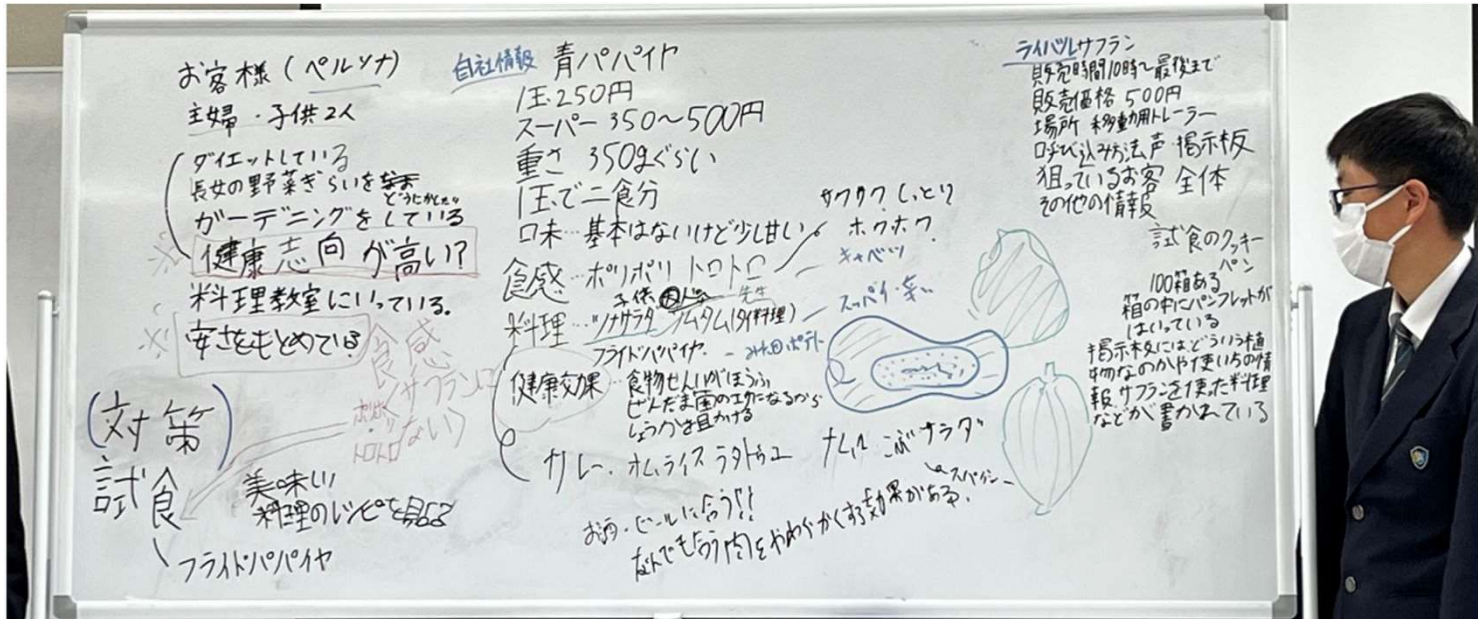 お客様(ペルソナ)
主婦・子供2人
ダイエットしている
長女の野菜ぎらいを
どうにかしたい
ガーデニングをしている
※健康志向が高い?
料理教室にいっている。
※安さをもとめている?
食感
サフランに
ない
ポリポリ
トロトロ
(対策)
試食
美味しい
料理のレシピを見
フライドパパイヤ
自社情報 青パパイヤ
1玉250円
スーパー 350〜500円
重さ 350gぐらい
1玉で二食分
味…基本はないけど少し甘い
サクサク しっとり
ホクホク
食感…ポリポリ トロトロ
キャベツ
子供 先生
料理…ツナサラダ ソムタム(タイ料理)
スッパイ・辛い
フライドパパイヤ
ポテト
健康効果…食物せんいがほうふ
ぜんだま菌のエサになるから
しょうかを助ける
カレー、オムライス ラタトゥユ ナムル こぶサラダ
スパイシー
お酒・ビールに合う!!
なんでも合う 肉をやわらかくする効果がある。
ライバル サフラン
販売時間 10時〜最後まで
販売価格 500円
場所 移動用トレーラー
呼び込み方法 声 掲示板
狙っているお客 全体
その他の情報
試食のクッキー
パン
100箱ある
箱の中にパンフレットが
はいっている
掲示板にはどういう植
物なのかや使い方の情
報 サフランを使った料理
などが書かれている